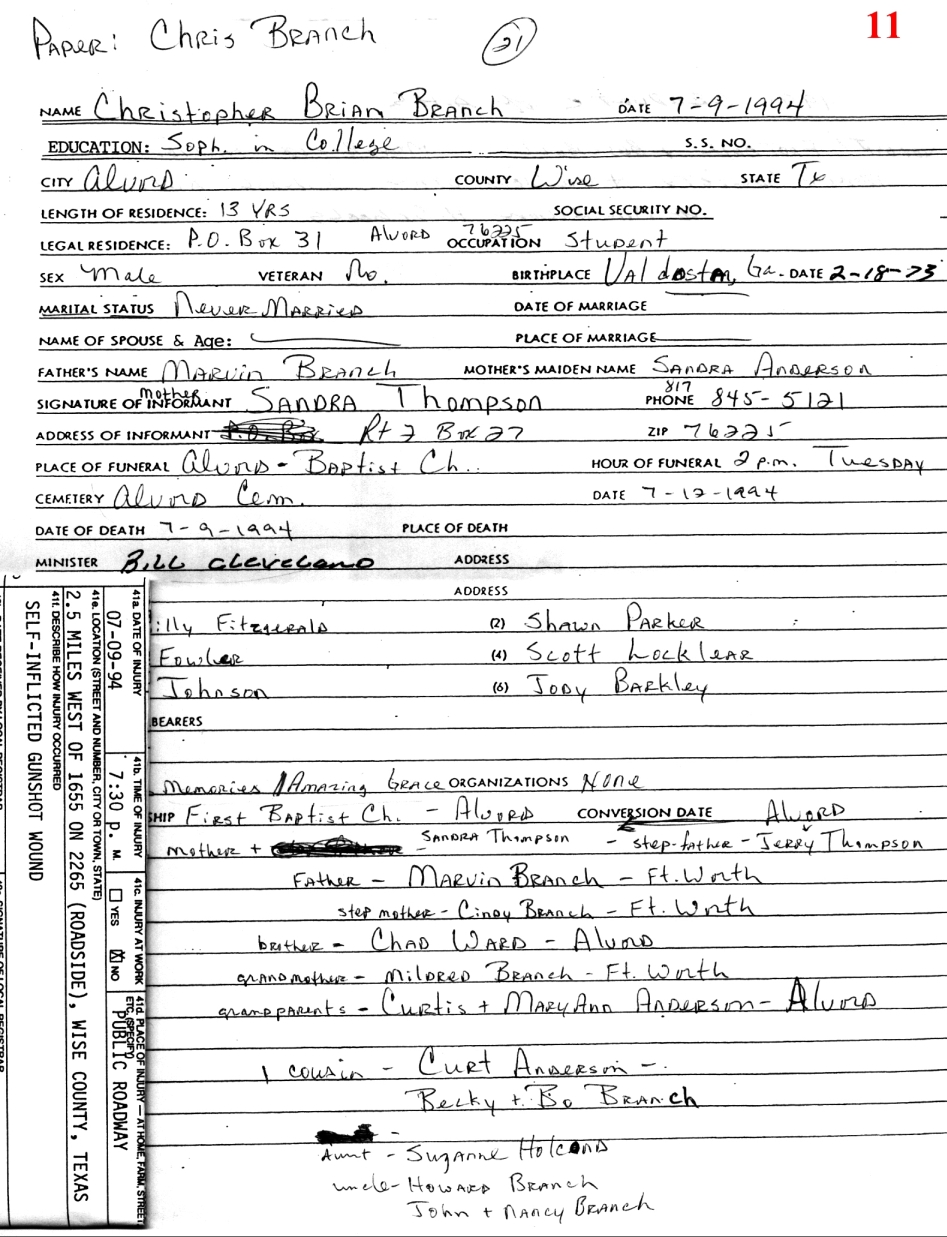 PAPER: Chris Branch 21 11
NAME Christopher Brian Branch DATE 7-9-1994
EDUCATION: Soph. in College S.S. NO.
CITY Alvord COUNTY Wise STATE Tx
LENGTH OF RESIDENCE: 13 YRS SOCIAL SECURITY NO.
LEGAL RESIDENCE: P.O. Box 31 Alvord 76225 OCCUPATION Student
SEX Male VETERAN No. BIRTHPLACE Valdosta, Ga. DATE 2-18-73
MARITAL STATUS Never Married DATE OF MARRIAGE
NAME OF SPOUSE & Age: PLACE OF MARRIAGE
FATHER'S NAME Marvin Branch MOTHER'S MAIDEN NAME Sandra Anderson
SIGNATURE OF INFORMANT mother Sandra Thompson PHONE 817 845-5121
ADDRESS OF INFORMANT Rt 2 Box 27 ZIP 76225
PLACE OF FUNERAL Alvord - Baptist Ch.. HOUR OF FUNERAL 2 p.m. Tuesday
CEMETERY Alvord Cem. DATE 7-12-1994
DATE OF DEATH 7-9-1994 PLACE OF DEATH
MINISTER Bill Cleveland ADDRESS
ADDRESS
illy Fitzgerald (2) Shawn Parker
Fowler (4) Scott Locklear
Johnson (6) Jody Barkley
BEARERS
Memories / Amazing Grace ORGANIZATIONS None
SHIP First Baptist Ch. - Alvord CONVERSION DATE Alvord
mother + Sandra Thompson - step-father - Jerry Thompson
Father - Marvin Branch - Ft. Worth
step mother - Cindy Branch - Ft. Worth
brother - Chad Ward - Alvord
grandmother - Mildred Branch - Ft. Worth
grandparents - Curtis + MaryAnn Anderson - Alvord
1 cousin - Curt Anderson -
Becky + Bo Branch
Aunt - Suzanne Holcomb
uncle - Howard Branch
John + Nancy Branch
41a. DATE OF INJURY 41b. TIME OF INJURY 41c. INJURY AT WORK 41d. PLACE OF INJURY — AT HOME, FARM, STREET, ETC. (SPECIFY)
07-09-94 7:30 p. M. YES X NO PUBLIC ROADWAY
41e. LOCATION (STREET AND NUMBER, CITY OR TOWN, STATE)
2.5 MILES WEST OF 1655 ON 2265 (ROADSIDE), WISE COUNTY, TEXAS
41f. DESCRIBE HOW INJURY OCCURRED
SELF-INFLICTED GUNSHOT WOUND